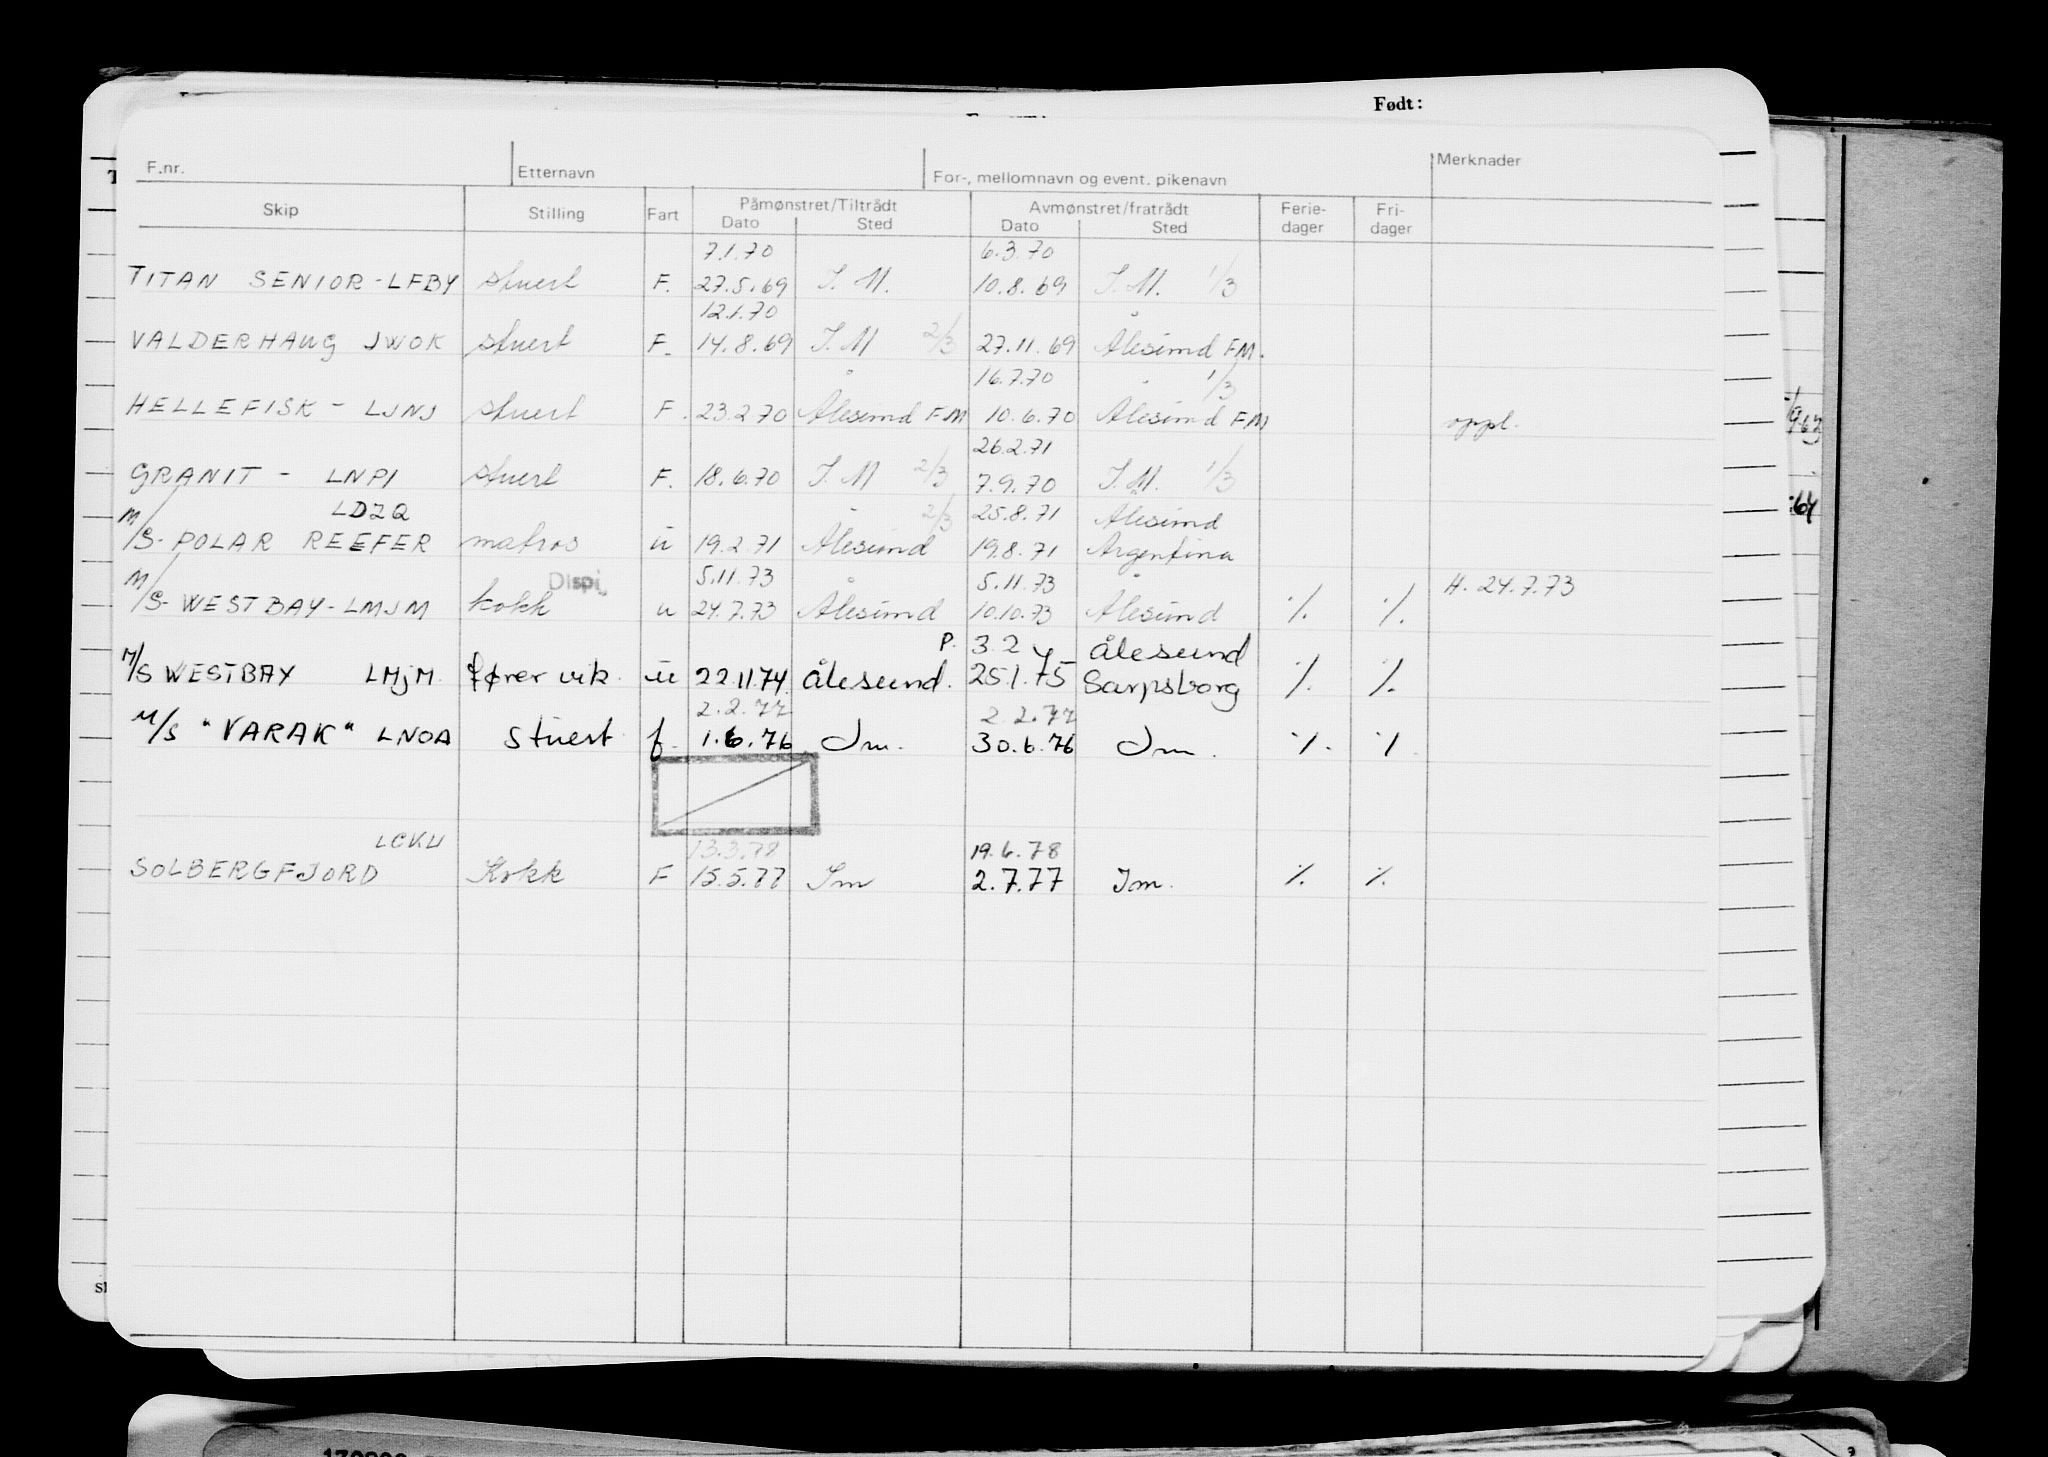 Født:
F.nr. Etternavn For-, mellomnavn og event. pikenavn Merknader
Skip Stilling Fart Påmønstret/Tiltrådt Avmønstret/fratrådt Ferie- Fri-
Dato Sted Dato Sted dager dager
7.1.70 6.3.70
TITAN SENIOR-LFBY stuert F. 27.5.69 I.M. 10.8.69 I.M. 1/3
12.1.70
VALDERHAUG JWOK stuert F. 14.8.69 I.M 2/3 27.11.69 Ålesund FM.
16.7.70 1/3
HELLEFISK - LJNJ stuert F. 23.2.70 Ålesund F.M 10.6.70 Ålesund F.M oppl.
26.2.71
GRANIT - LNPI stuert F. 18.6.70 I.M 2/3 7.9.70 I.M. 1/3
LDZQ 2/3 25.8.71 Ålesund
M/S- POLAR REEFER matros u 19.2.71 Ålesund 19.8.71 Argentina
Dispi. 5.11.73 5.11.73 H. 24.7.73
M/S- WESTBAY-LMJM kokk u 24.7.73 Ålesund 10.10.73 Ålesund ٪ ٪
P. 3.2 Ålesund
M/S WESTBAY LMJM fører vik. u 22.11.74 Ålesund. 25.1.75 Sarpsborg ٪ ٪
2.2.77 2.2.77
M/S "VARAK" LNOA stuert f. 1.6.76 Im. 30.6.76 Im. ٪ ٪
LCKU 13.3.78 19.6.78
SOLBERGFJORD Kokk F 15.5.77 Im 2.7.77 Im. ٪ ٪